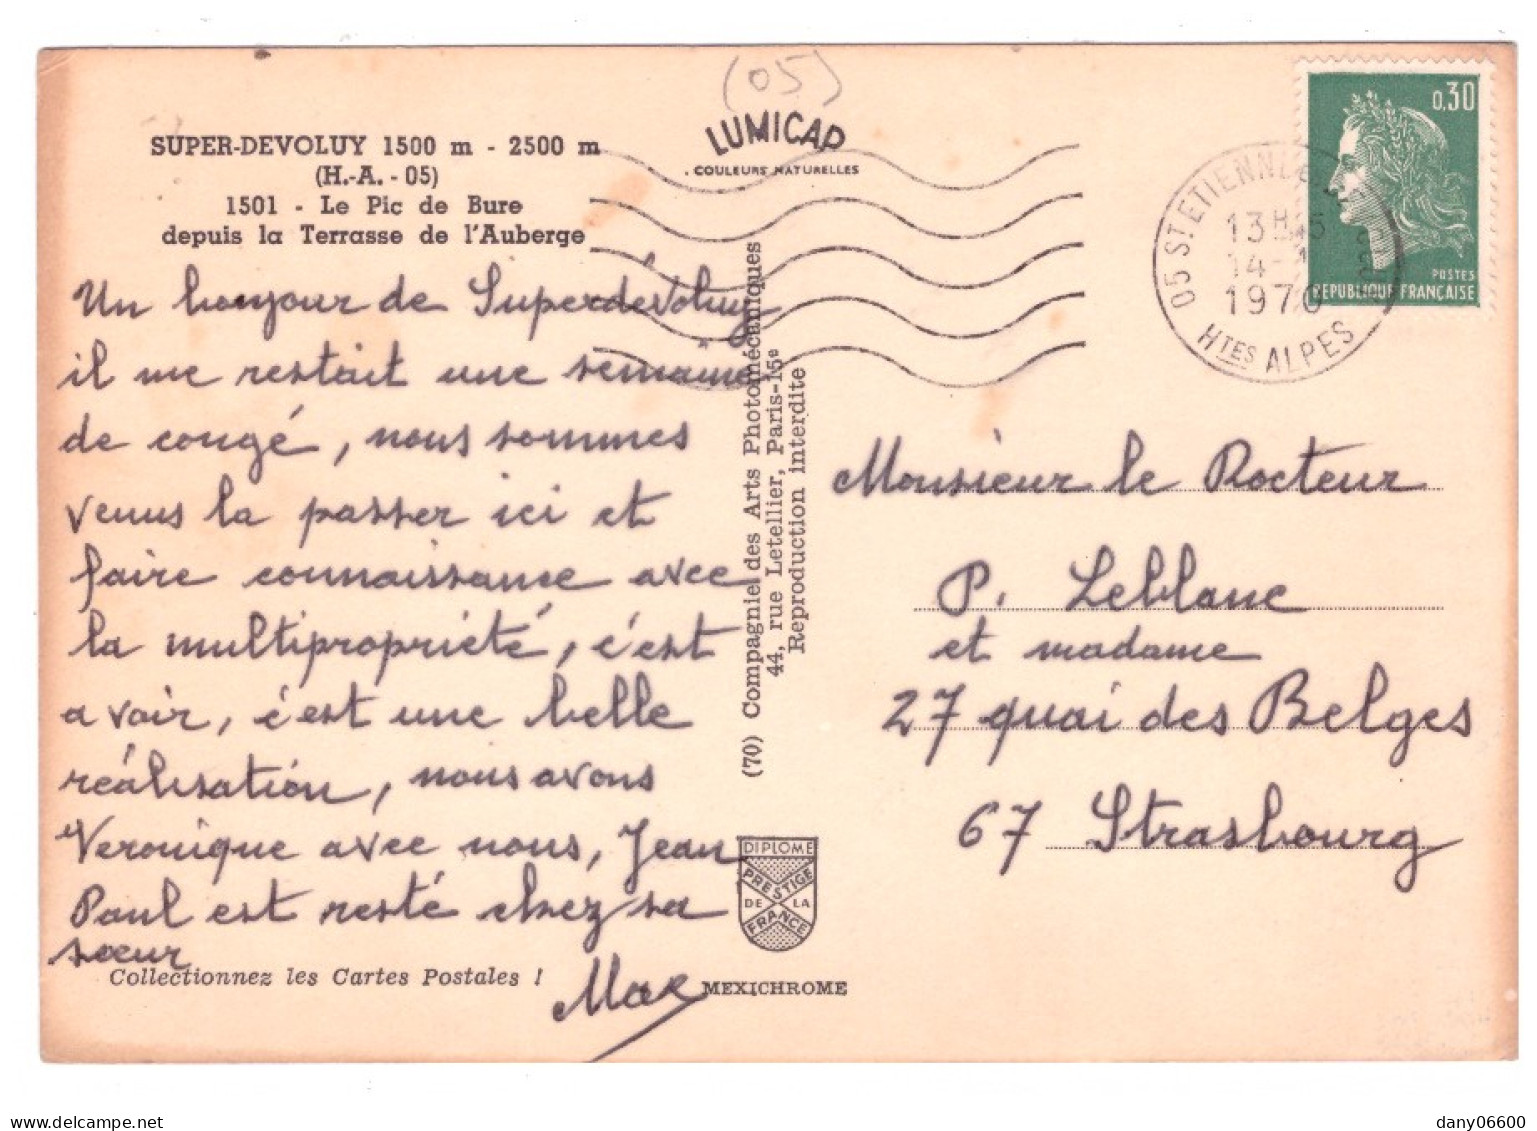 (05)
LUMICAP
COULEURS NATURELLES
SUPER-DEVOLUY 1500 m - 2500 m
(H.-A. - 05)
1501 - Le Pic de Bure
depuis la Terrasse de l'Auberge
Un bonjour de Superdévoluy
il me restait une semaine
de congé, nous sommes
venus la passer ici et
faire connaissance avec
la multipropriété, c'est
a voir, c'est une belle
réalisation, nous avons
Veronique avec nous, Jean
Paul est resté chez sa
sœur
Collectionnez les Cartes Postales !
(70) Compagnie des Arts Photomécaniques
44, rue Letellier, Paris-15e
Reproduction interdite
DIPLOME
PRESTIGE
DE LA
FRANCE
MEXICHROME
0,30
POSTES
REPUBLIQUE FRANÇAISE
05 ST ETIENNE
13H
14-
1970
HTES ALPES
Monsieur le Rocteur
P. Leblanc
et madame
27 quai des Belges
67 Strasbourg
dany06600